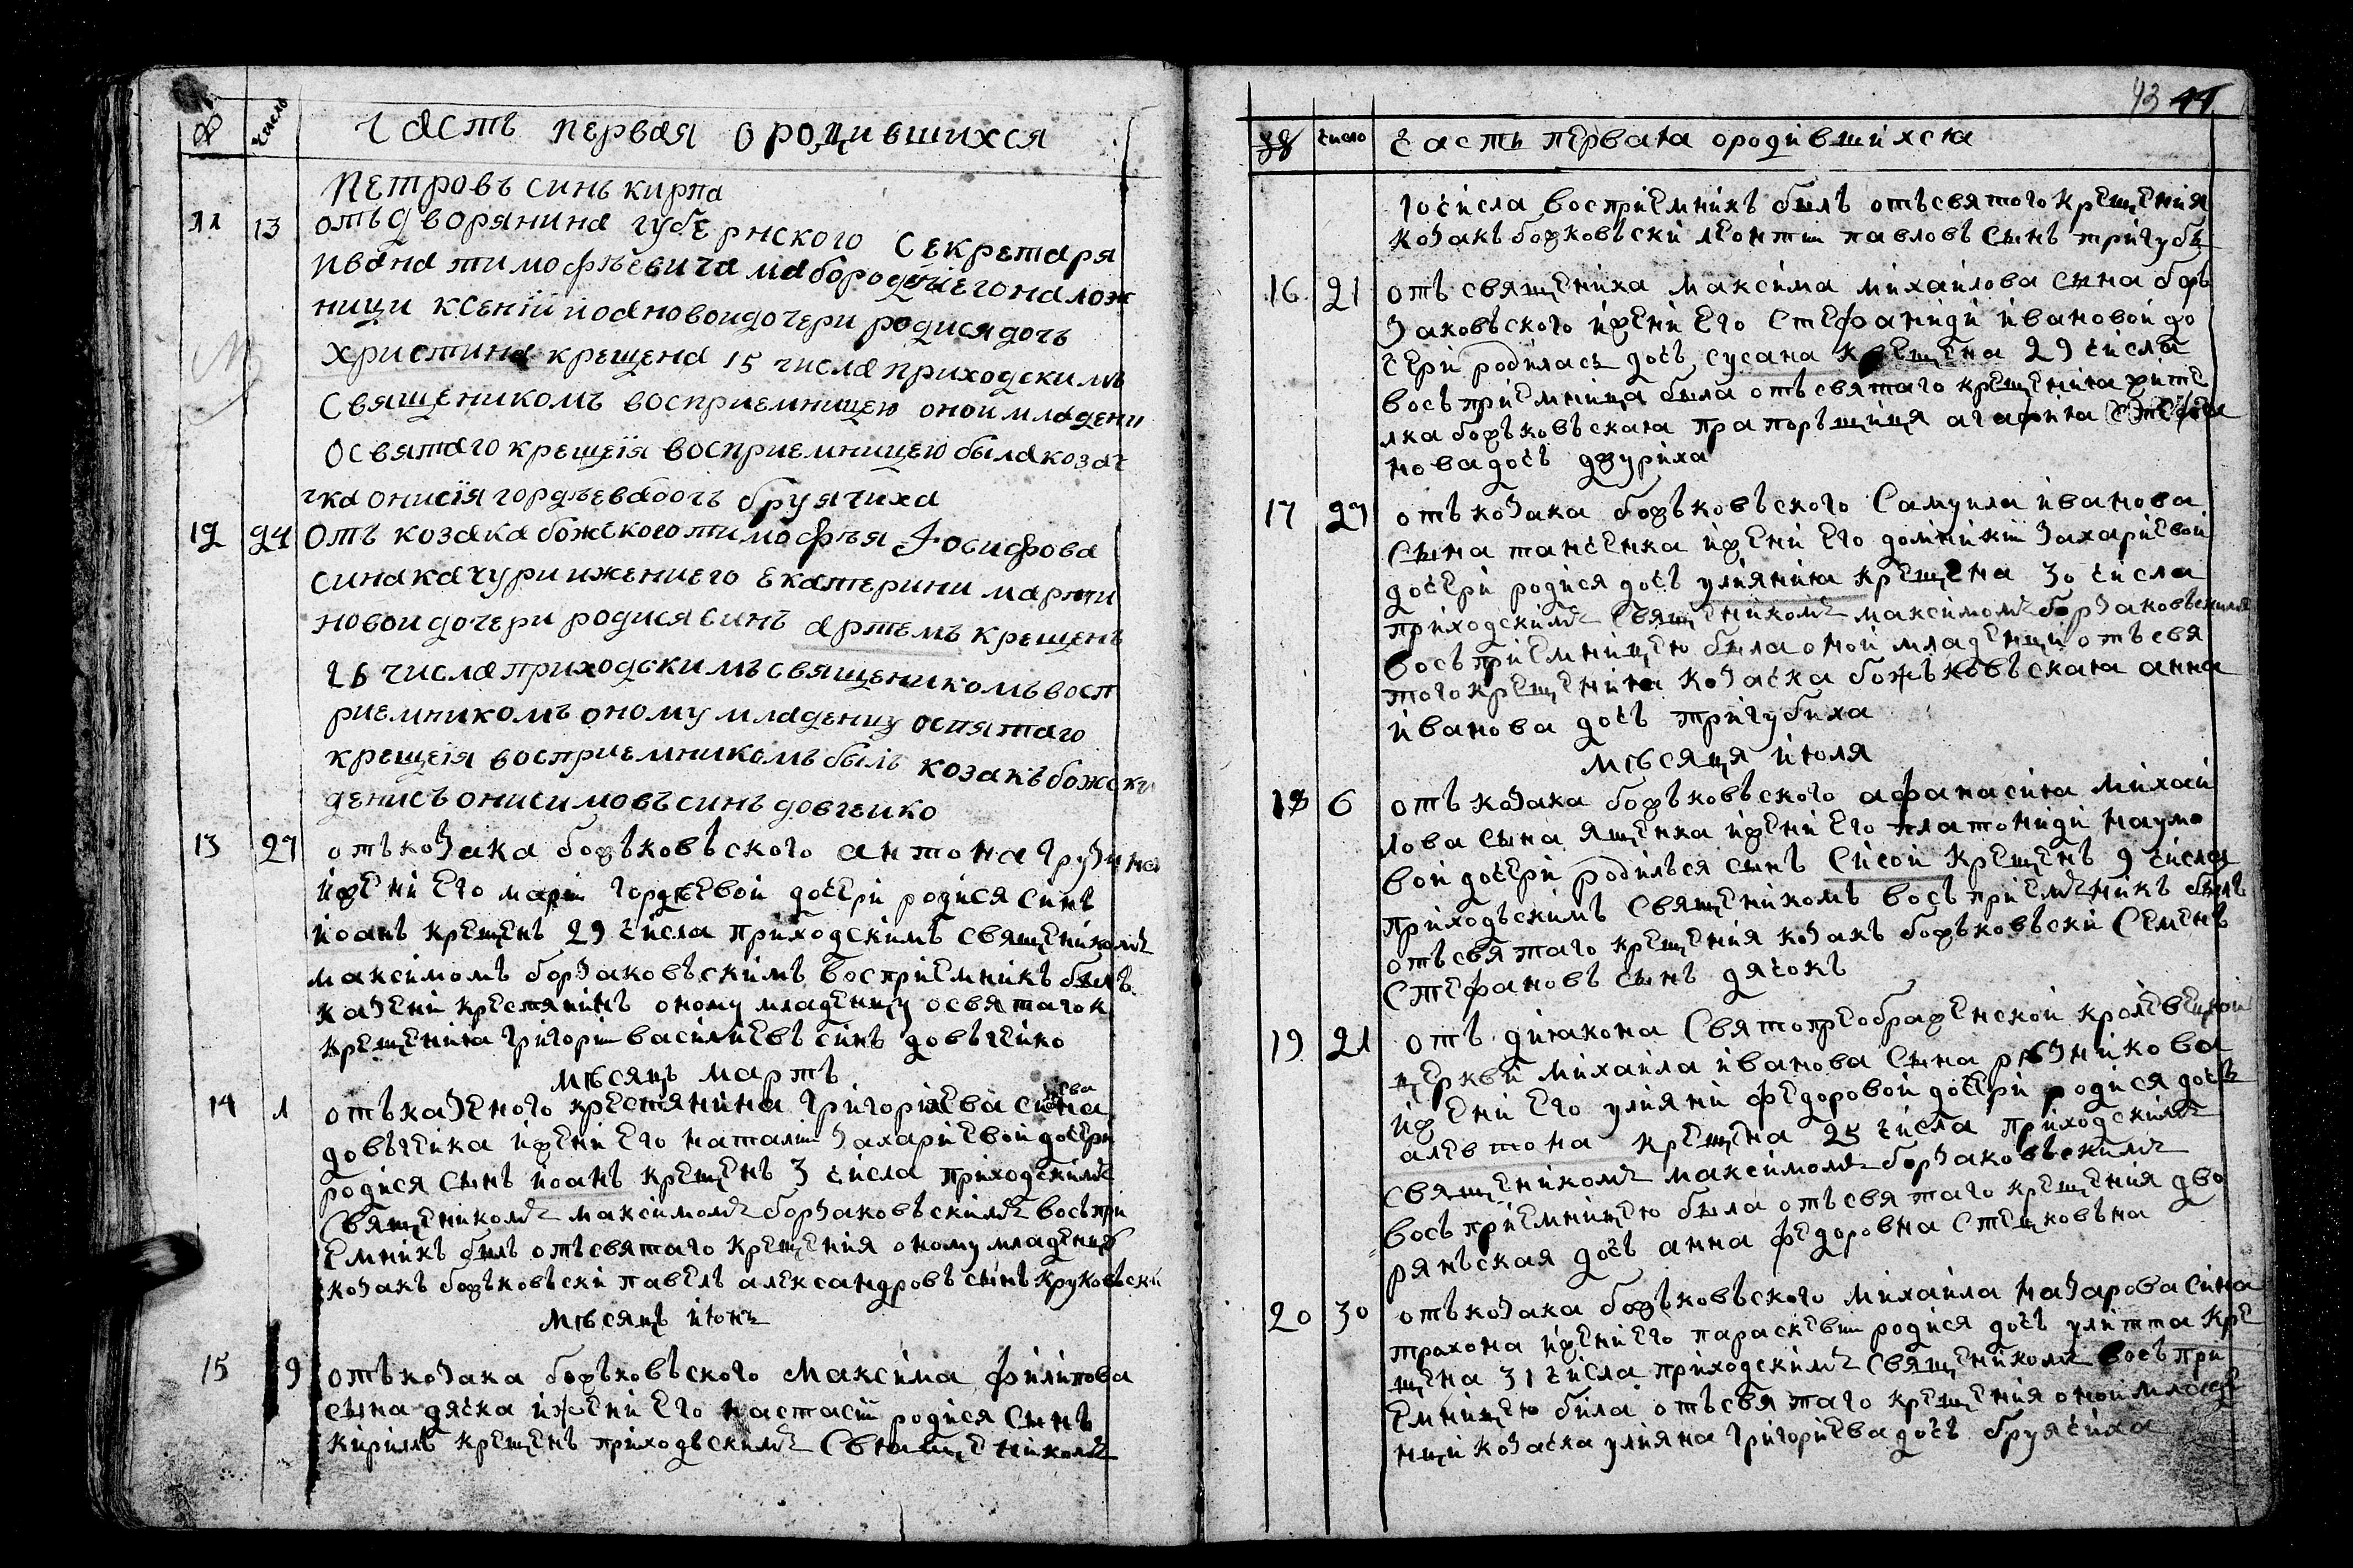 число Часть первая ородившихся
Петровъ синъ кирпа
11 13 отъ дворянина губернского Секретаря
Ивана тимофѣевича его налож
ници ксенїй иоановои дочери родися дочь
христина крещена 15 числа приходскимъ
Священикомъ восприемницею онои младени
освятаго крещеія восприемницею была козач
чка онисїя гордѣева дочь бруячиха
12 24 Отъ козака божского тимофѣя Іосифова
сина качури ижени его екатерини марти
новои дочери родися синъ артемъ крещенъ
26 числа приходскимъ священикомъ восп
риемникомъ оному младенцу освятаго
крещеія восприемникомъ былъ козакъ божски
денисъ онисимовъ синъ довгенко
13 27 отъ козака божъковъского антона грузина
йжени его маріи гордѣевои дочери родися синъ
йоанъ крещенъ 29 числа приходскимъ священикомъ
максимомъ борзаковъскимъ восприемникъ былъ
казени крестянинъ оному младенцу освятагок
крещения григории василиевъ синъ довъгенко
мѣсяцъ мартъ
14 1 отъ казеного крестянина григориева сина
довъгенка йжени его наталіи захариевои дочери
родися сынъ иоанъ крещенъ 3 числа приходскимъ
Священикомъ максимомъ борзаковъскимъ восъпри
емникъ былъ отъ святаго крещения оному младенцу
козакъ божъковъски павелъ александровъ сынъ круковъски
мѣсяцъ июнъ
15 9 отъ козака божъковъского максима филипова
сына дячка йжени его настасіи родися сынъ
кирилъ крещенъ приходъскимъ Священикомъ
43
число часть первая ородившихся
10 числа восприемникъ былъ отъ святого крещения
козакъ божковъски леонтии павловъ сынъ тригубъ
16 21 отъ священика максима михаилова сына борь
заковъского йжени его стефаниди ивановой до
чери родиласъ дочъ сусана крещена 29 числа
восъприемница была отъ святаго крещения жите
лка божъковъская прапоръщиця агафия
нова дочъ джуриха
17 27 отъ козака божъковъского Самуила иванова
сына танченка йжени его домникіи захариевой
дочери родися дочъ улияния крещена 30 числа
приходскимъ священикомъ максимомъ борзаковъскимъ
восъприемницею была оной младенци отъ свя
того крещения козачка божъковъская анна
иванова дочъ тригубиха
мѣсяця июля
18 6 отъ козака божъковъского афанасия михай
лова сына ященка йжени его платониди наумо
вой дочери родилъся сынъ Сисой крещенъ 9 числа
приходъскимъ священикомъ восъприемъникъ былъ
отъ святаго крещения козакъ божъковъски Семенъ
Стефановъ сынъ дячокъ
19 21 отъ диякона Святопреображенской кролевецкой
церкви михаила иванова сына рѣзникова
йжени его улияни федоровой дочери родися дочъ
алевтона крещена 25 числа приходскимъ
священикомъ максимомъ борзаковъскимъ
восъприемницею была отъ святаго крещения дво
рянъская дочъ анна федоровна стецковъна
20 30 отъ козака божъковъского михаила назарова сина
трахона йжени его параскевии родися дочъ улитта кре
щена 31 числа приходскимъ священикомъ восъпри
емницею била отъ святаго крещения оной младе
нци козачка улияна григориева дочъ бруячиха